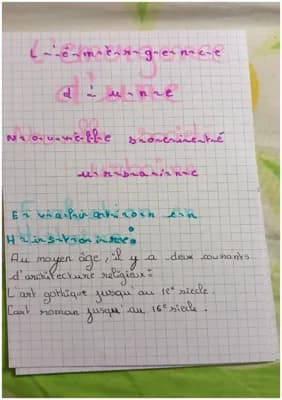 L'émergence
d'une
Nouvelle société
urbaine
Evaluation en
Histoire:
Au moyen âge, il y a deux courants
d'architecture religieux:
L'art gothique jusqu'au 12e siècle.
L'art roman jusqu'au 16e siècle.